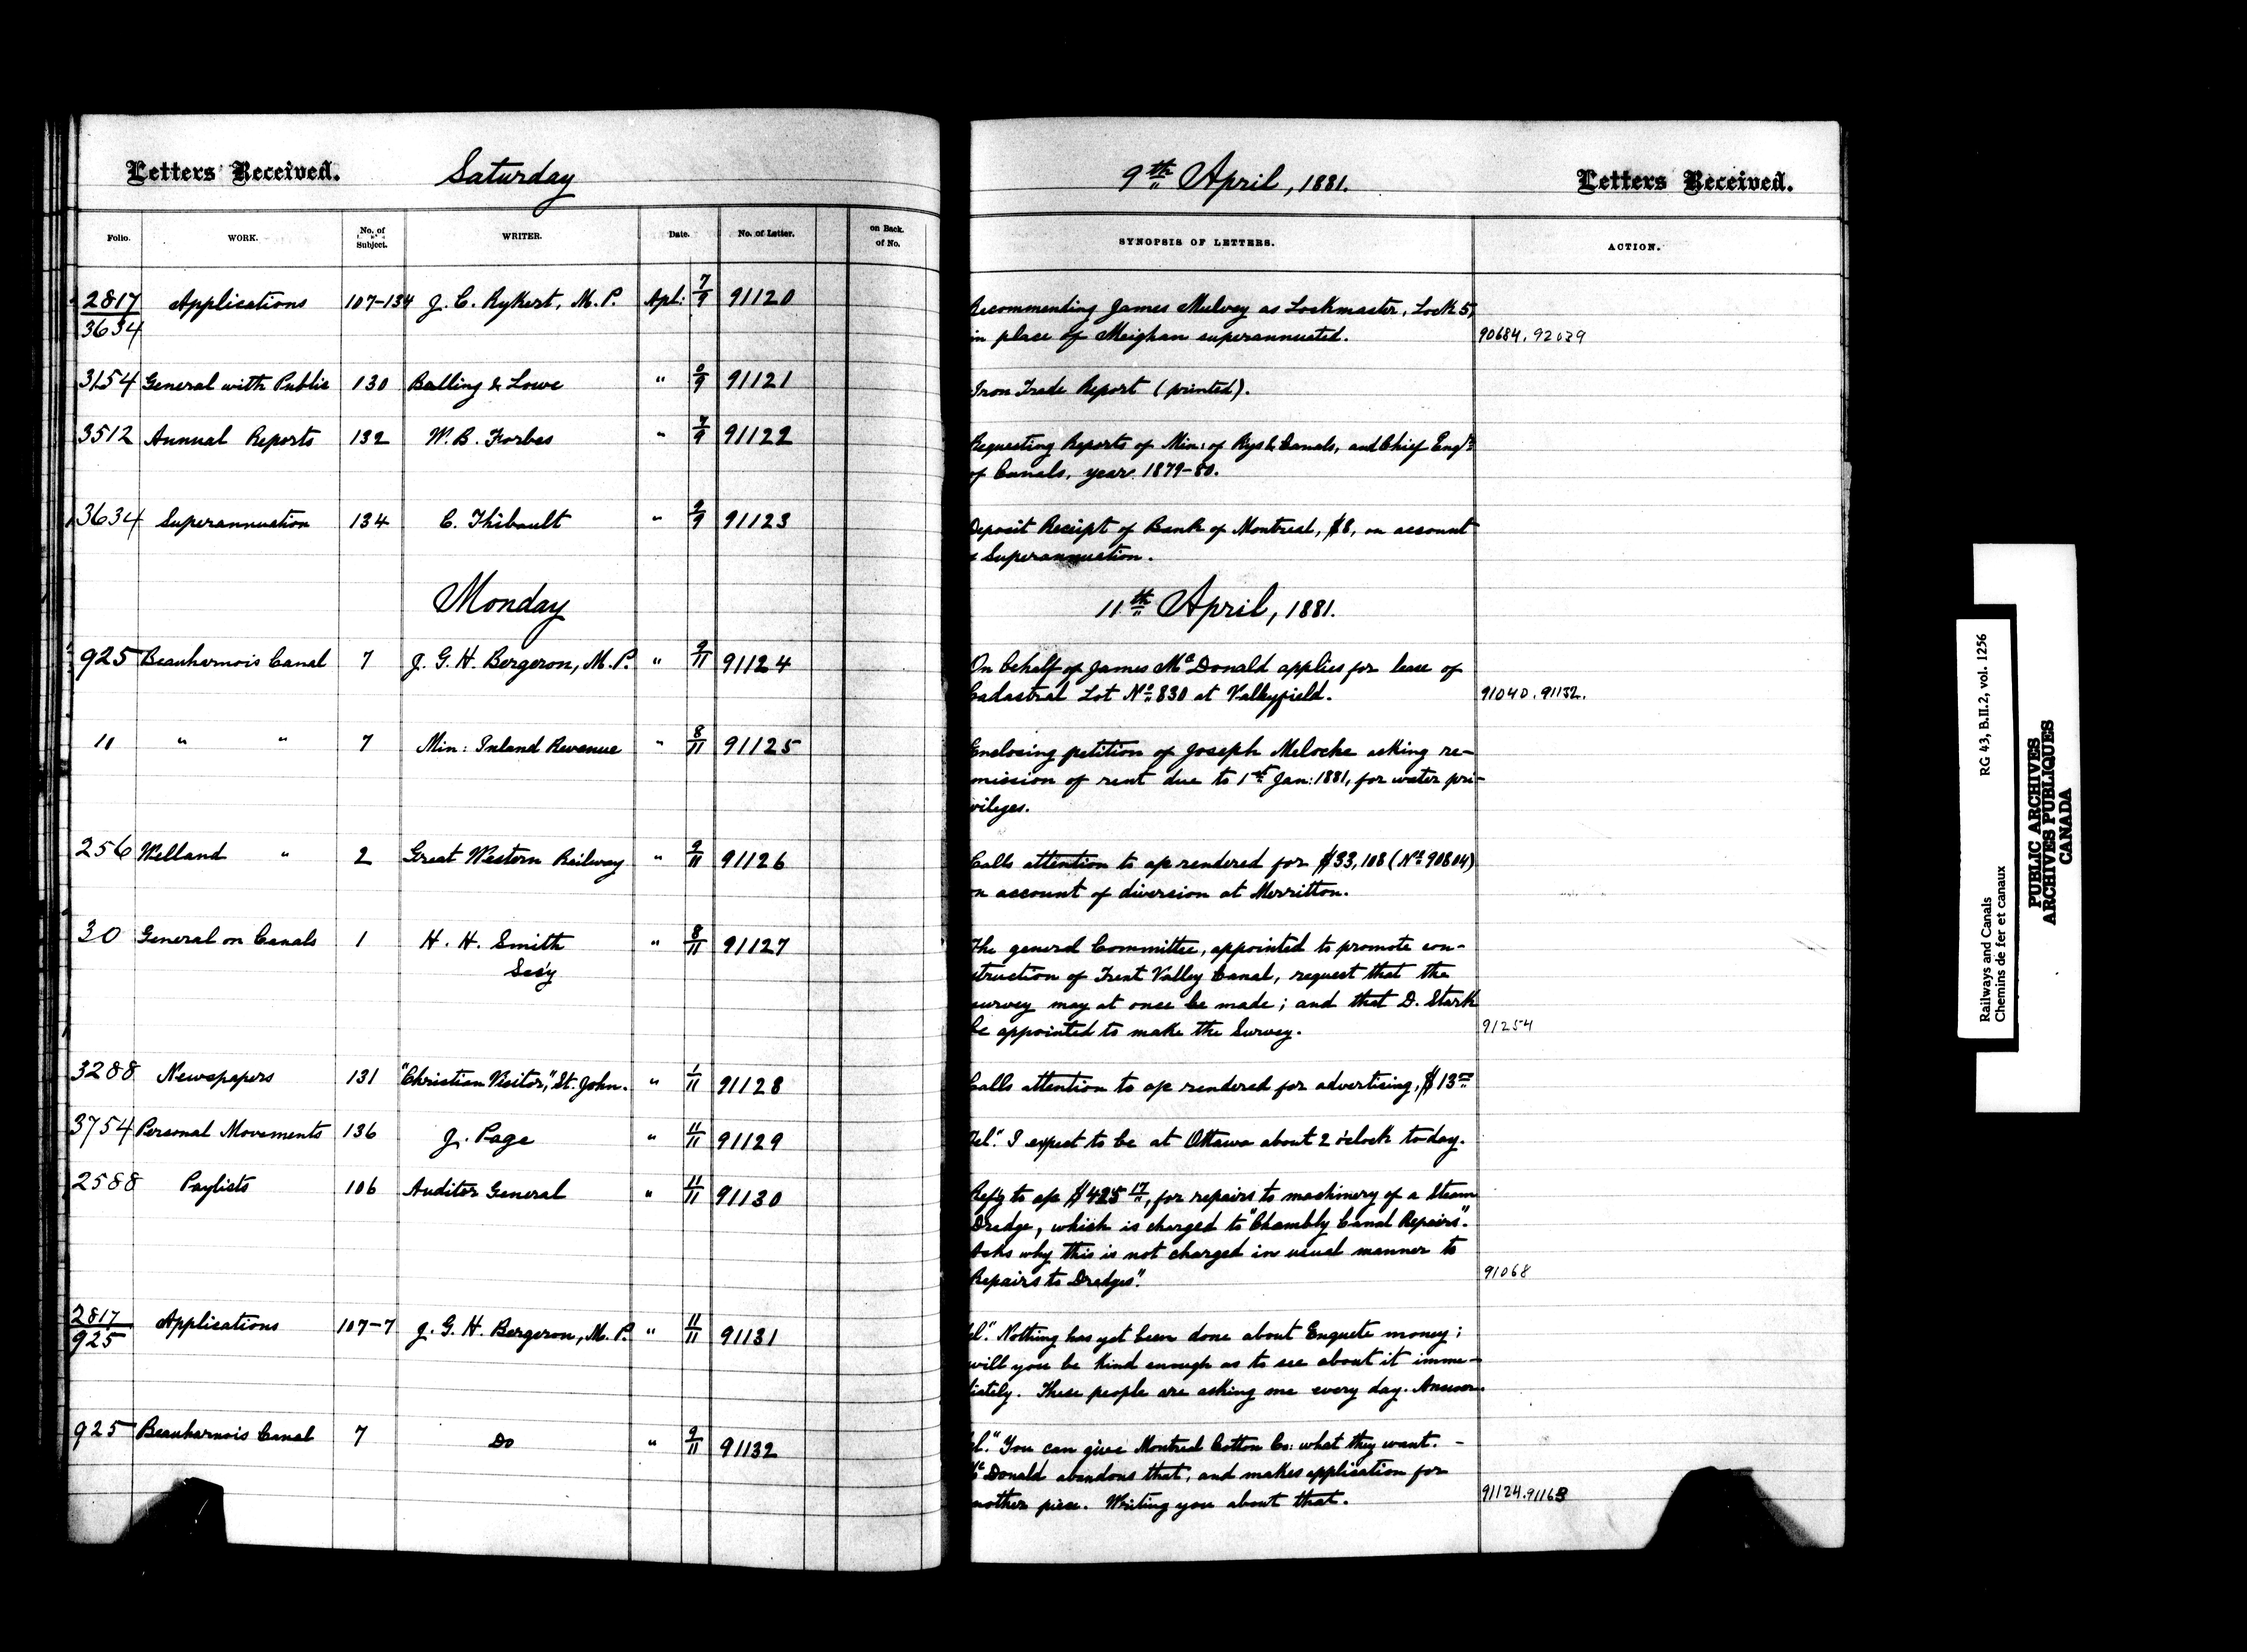 Letters Received.
Saturday
9th April, 1881.
Letters Received.
Folio. WORK. No. of Subject. WRITER. Date. No. of Letter. on Back. of No. SYNOPSIS OF LETTERS. ACTION.
2817/3634 Applications 107-134 J. C. Rykert, M.P. Apl: 7/9 91120
Recommending James Mulvey as Lockmaster, Lock 5,
in place of Meighan superannuated. 90684. 92039
3154 General with Public 130 Balling & Lowe " /9 91121
Iron Trade Report (printed).
3512 Annual Reports 132 W. B. Forbes " 7/9 91122
Requesting Reports of Min: of Rys & Canals, and Chief Engr
of Canals, year 1879-80.
3634 Superannuation 134 C. Thibault " 9/9 91123
Deposit Receipt of Bank of Montreal, $8, on account
Superannuation.
Monday
11th April, 1881.
925 Beauharnois Canal 7 J. G. H. Bergeron, M.P. " 9/11 91124
On behalf of James McDonald applies for lease of
Cadastral Lot No 830 at Valleyfield. 91040. 91132.
" " " 7 Min: Inland Revenue " 8/11 91125
Enclosing petition of Joseph Meloche asking re-
mission of rent due to 1st Jan: 1881, for water pri-
vileges.
256 Welland " 2 Great Western Railway " 9/11 91126
Calls attention to a/c rendered for $33,108 (No 90804)
on account of diversion at Merritton.
30 General on Canals 1 H. H. Smith " 8/11 91127
Secy
The general Committee, appointed to promote con-
struction of Trent Valley Canal, request that the
survey may at once be made; and that D. Stark
be appointed to make the Survey. 91254
3288 Newspapers 131 "Christian Visitor," St. John. " 1/11 91128
Calls attention to a/c rendered for advertising, $13
3754 Personal Movements 136 J. Page " 11/11 91129
Tel." I expect to be at Ottawa about 2 o'clock to-day.
2588 Paylists 106 Auditor General " 11/11 91130
Refg to a/c $425 17, for repairs to machinery of a Steam
Dredge, which is charged to "Chambly Canal Repairs".
Asks why this is not charged in usual manner to
Repairs to Dredges". 91068
2817/925 Applications 107-7 J. G. H. Bergeron, M.P. " 11/11 91131
el." Nothing has yet been done about Enquete money;
will you be kind enough as to see about it imme-
diately. These people are asking me every day. Answer.
925 Beauharnois Canal 7 Do " 9/11 91132
el." You can give Montreal Cotton Co: what they want. -
McDonald abandons that, and makes application for
another piece. Writing you about that. 91124. 91163
Railways and Canals RG 43, B.II.2, vol. 1256
Chemins de fer et canaux
PUBLIC ARCHIVES
ARCHIVES PUBLIQUES
CANADA